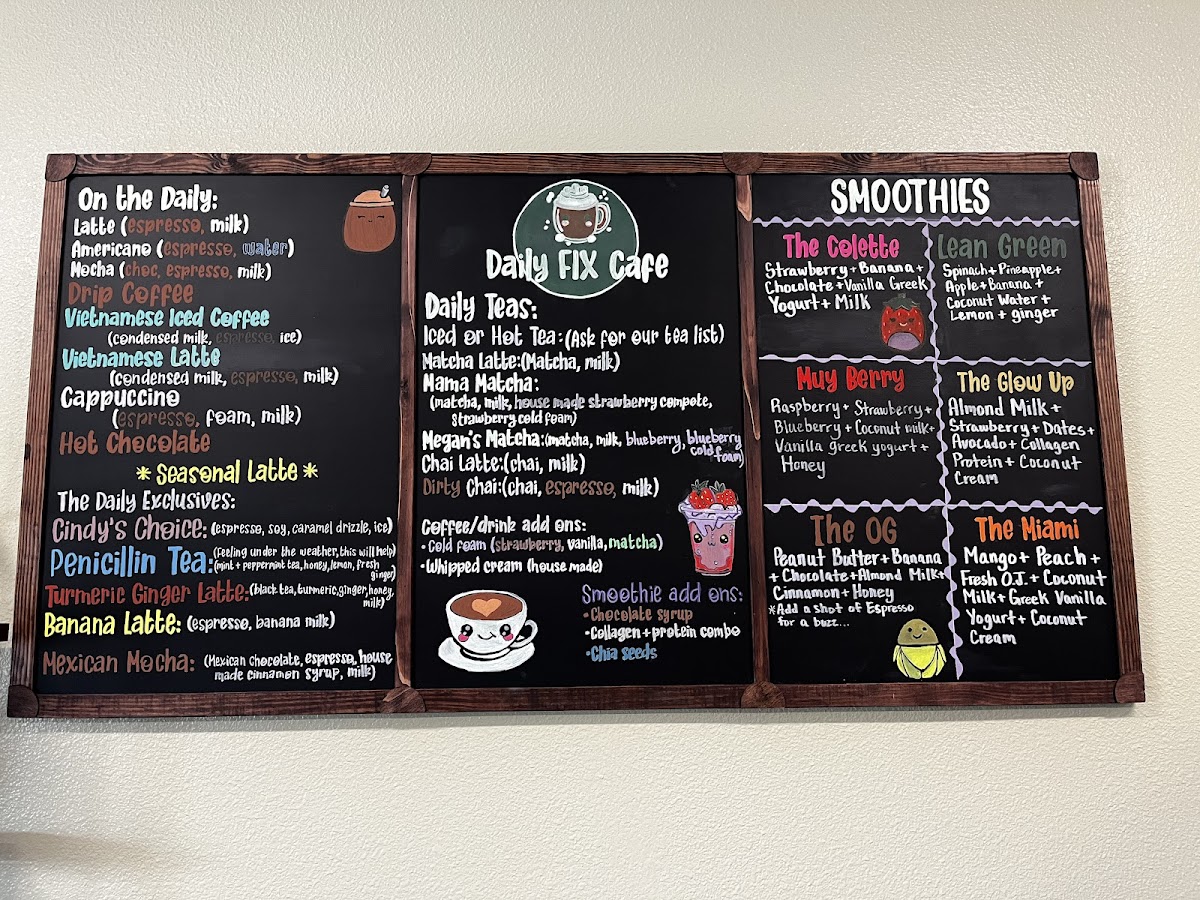 On the Daily:
Latte (espresso, milk)
Americano (espresso, water)
Mocha (choc, espresso, milk)
Drip Coffee
Vietnamese Iced Coffee
(condensed milk, espresso, ice)
Vietnamese Latte
(condensed milk, espresso, milk)
Cappuccino
(espresso, foam, milk)
Hot Chocolate
* Seasonal Latte *
The Daily Exclusives:
Cindy's Choice: (espresso, soy, caramel drizzle, ice)
Penicillin Tea: (feeling under the weather, this will help)
(mint + peppermint tea, honey, lemon, fresh
ginger)
Turmeric Ginger Latte: (black tea, turmeric, ginger, honey,
milk)
Banana Latte: (espresso, banana milk)
Mexican Mocha: (Mexican chocolate, espresso, house
made cinnamon syrup, milk)
Daily FIX Cafe
Daily Teas:
Iced or Hot Tea: (Ask for our tea list)
Matcha Latte: (Matcha, milk)
Mama Matcha:
(matcha, milk, house made strawberry compote,
strawberry cold foam)
Megan's Matcha: (matcha, milk, blueberry, blueberry
cold foam)
Chai Latte: (chai, milk)
Dirty Chai: (chai, espresso, milk)
Coffee/drink add ons:
• Cold foam (strawberry, vanilla, matcha)
• Whipped cream (house made)
Smoothie add ons:
• Chocolate syrup
• Collagen + protein combo
• Chia seeds
SMOOTHIES
The Colette
Strawberry + Banana +
Chocolate + Vanilla Greek
Yogurt + Milk
Lean Green
Spinach + Pineapple +
Apple + Banana +
Coconut Water +
Lemon + ginger
Muy Berry
Raspberry + Strawberry +
Blueberry + Coconut milk +
Vanilla greek yogurt +
Honey
The Glow Up
Almond Milk +
Strawberry + Dates +
Avocado + Collagen
Protein + Coconut
Cream
The OG
Peanut Butter + Banana
+ Chocolate + Almond Milk +
Cinnamon + Honey
*Add a shot of Espresso
for a buzz...
The Miami
Mango + Peach +
Fresh O.J. + Coconut
Milk + Greek Vanilla
Yogurt + Coconut
Cream